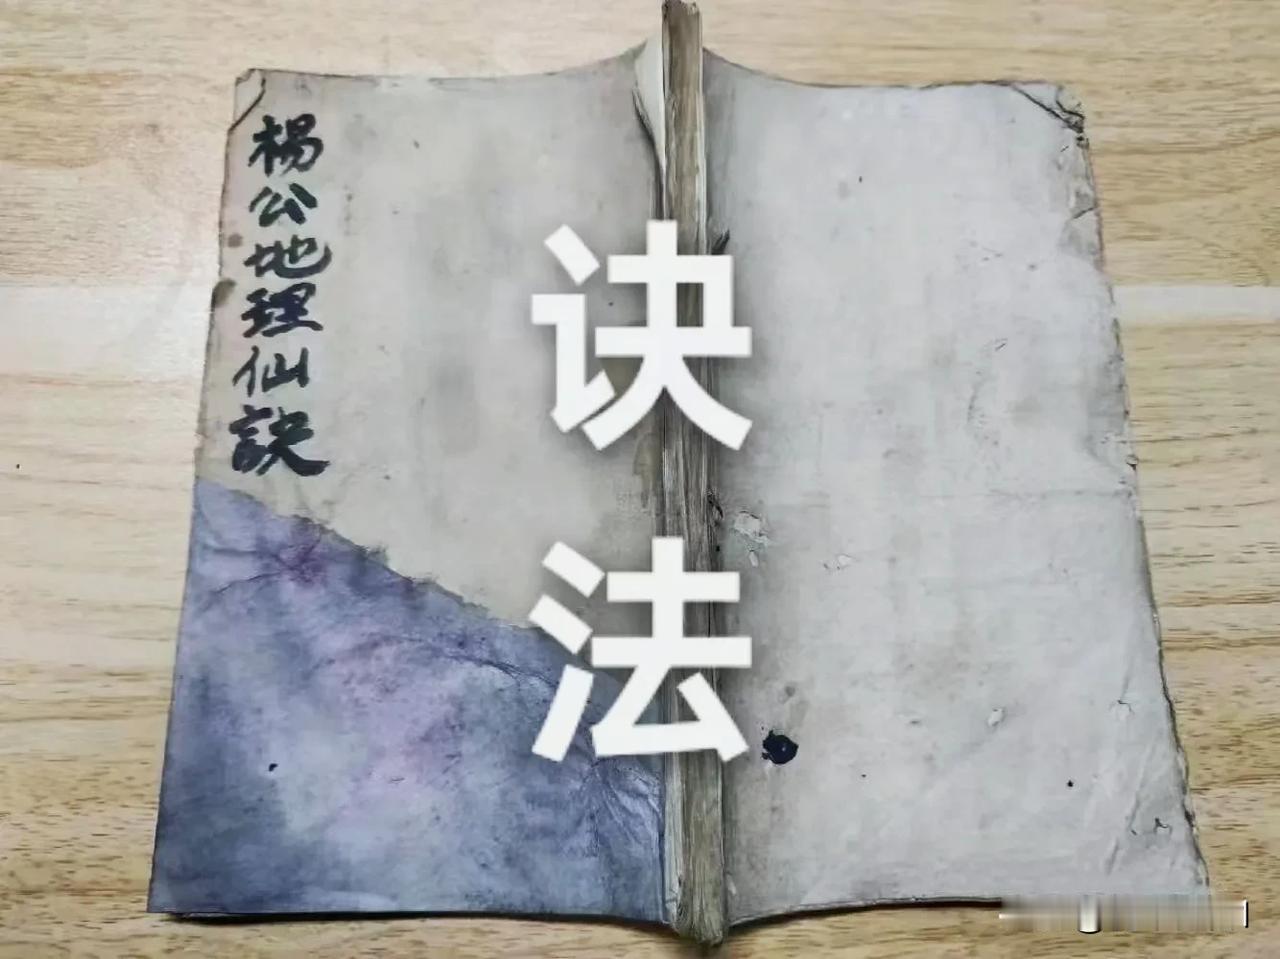 楊公地理仙訣
诀法